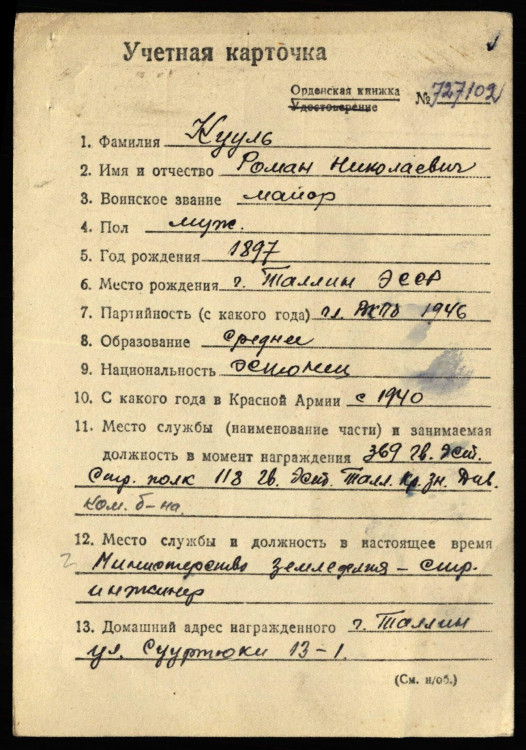 Учетная карточка
Орденская книжка
Удостоверение
№ 727102
1. Фамилия Кууль
2. Имя и отчество Роман Николаевич
3. Воинское звание майор
4. Пол муж.
5. Год рождения 1897
6. Место рождения г. Таллин ЭССР
7. Партийность (с какого года) 1946
8. Образование среднее
9. Национальность эстонец
10. С какого года в Красной Армии с 1940
11. Место службы (наименование части) и занимаемая
должность в момент награждения 369 гв. Эст.
Стр. полк 118 гв. Эст. Талл. кр. зн. див.
ком. б-на
12. Место службы и должность в настоящее время
Министерство земледелия – стр.
инжинер
13. Домашний адрес награжденного г. Таллин
ул. Сууртюки 13-1.
(См. н/об.)